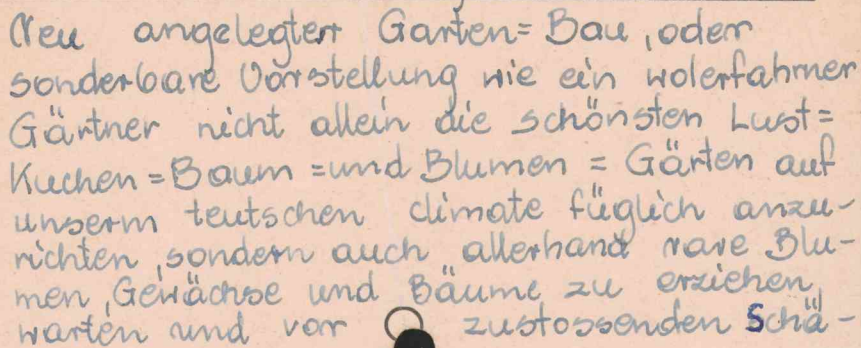 Neu angelegter Garten=Bau, oder
sonderbare Vorstellung wie ein wolerfahrner
Gärtner nicht allein die schönsten Lust=
Kuchen=Baum=und Blumen=Gärten auf
unserm teutschen climate füglich anzu-
richten, sondern auch allerhand rare Blu-
men, Gewächse und Bäume zu erziehen,
warten und vor zustossenden Schä-